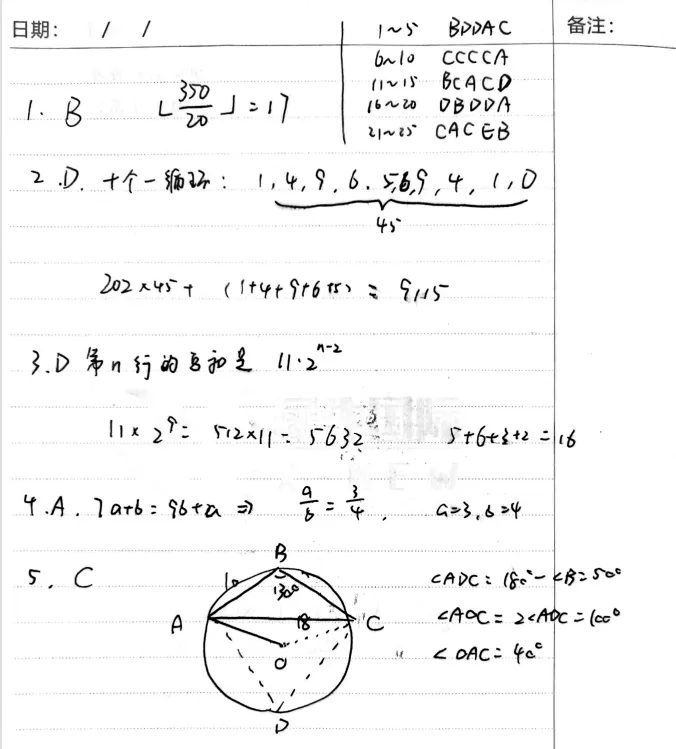 日期: / / 备注:
1~5 BDDAC
6~10 CCCCA
11~15 BCACD
16~20 DBDDA
21~25 CACEB
1. B ⌊350/20⌋=17
2.D. 十个一循环: 1,4,9,6.5,6,9,4,1,0
45
202×45+(1+4+9+6+5)=9115
3.D 第n行的总和是 11·2^(n-2)
11×2^9=512×11=5632 5+6+3+2=16
4.A. 7a+b=9b+a ⇒ a/b=3/4. a=3,b=4
5. C
B
10 130°
A 18 C
O
D
∠ADC=180°-∠B=50°
∠AOC=2∠ADC=100°
∠OAC=40°